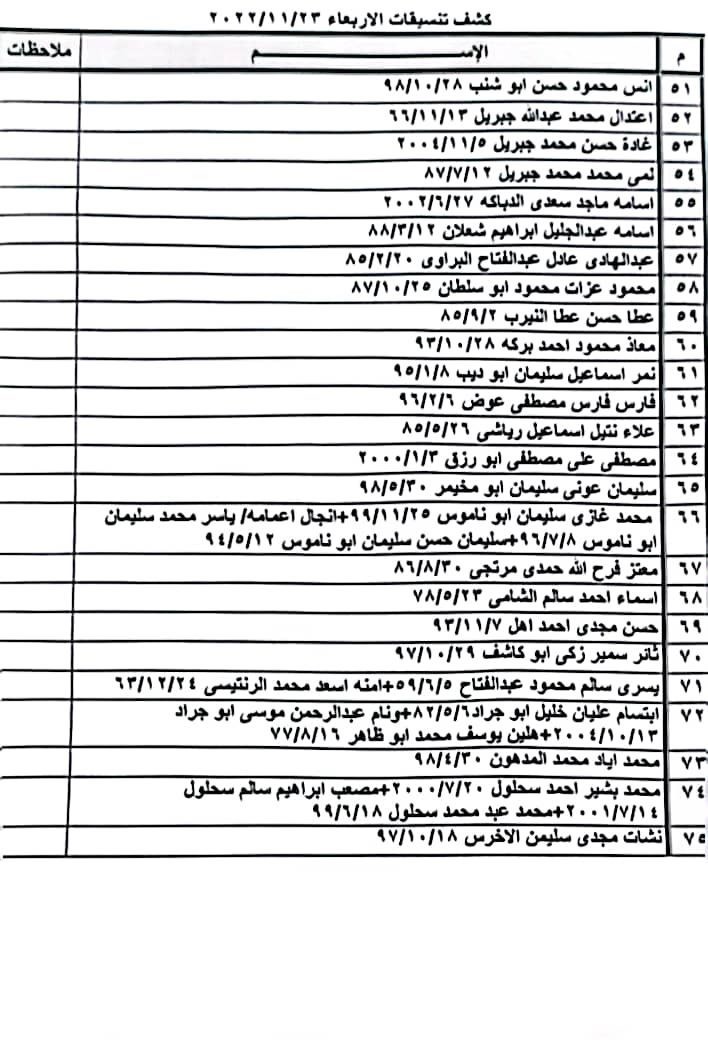 كشف تنسيقات الاربعاء ٢٠٢٢/١١/٢٣
م الإســـم ملاحظات
٥١ انس محمود حسن ابو شنب ٩٨/١٠/٢٨
٥٢ اعتدال محمد عبدالله جبريل ٦٦/١١/١٣
٥٣ غادة حسن محمد جبريل ٢٠٠٤/١١/٥
٥٤ نمى محمد محمد جبريل ٨٧/٧/١٢
٥٥ اسامه ماجد سعدى الدباكه ٢٠٠٢/٦/٢٧
٥٦ اسامه عبدالجليل ابراهيم شعلان ٨٨/٣/١٢
٥٧ عبدالهادى عادل عبدالفتاح البراوى ٨٥/٢/٢٠
٥٨ محمود عزات محمود ابو سلطان ٨٧/١٠/٢٥
٥٩ عطا حسن عطا النيرب ٨٥/٩/٢
٦٠ معاذ محمود احمد بركه ٩٣/١٠/٢٨
٦١ نمر اسماعيل سليمان ابو ديب ٩٥/١/٨
٦٢ فارس فارس مصطفى عوض ٩٦/٢/٦
٦٣ علاء نتيل اسماعيل رياشى ٨٥/٥/٢٦
٦٤ مصطفى على مصطفى ابو رزق ٢٠٠٠/١/٣
٦٥ سليمان عونى سليمان ابو مخيمر ٩٨/٥/٣٠
٦٦ محمد غازى سليمان ابو ناموس ٩٩/١١/٢٥+انجال اعمامه/ ياسر محمد سليمان
ابو ناموس ٩٦/٧/٨+سليمان حسن سليمان ابو ناموس ٩٤/٥/١٢
٦٧ معتز فرح الله حمدى مرتجى ٨٦/٨/٣٠
٦٨ اسماء احمد سالم الشامى ٧٨/٥/٢٣
٦٩ حسن مجدى احمد اهل ٩٣/١١/٧
٧٠ ثائر سمير زكى ابو كاشف ٩٧/١٠/٢٩
٧١ يسرى سالم محمود عبدالفتاح ٥٩/٦/٥+امنه اسعد محمد الرنتيسى ٦٣/١٢/٢٤
٧٢ ابتسام عليان خليل ابو جراد٨٢/٥/٦+ونام عبدالرحمن موسى ابو جراد
٢٠٠٤/١٠/١٣+هلين يوسف محمد ابو ظاهر ٧٧/٨/١٦
٧٣ محمد اياد محمد المدهون ٩٨/٤/٣٠
٧٤ محمد بشير احمد سحلول ٢٠٠٠/٧/٢٠+مصعب ابراهيم سالم سحلول
٢٠٠١/٧/١٤+محمد عبد محمد سحلول ٩٩/٦/١٨
٧٥ نشات مجدى سليمن الاخرس ٩٧/١٠/١٨